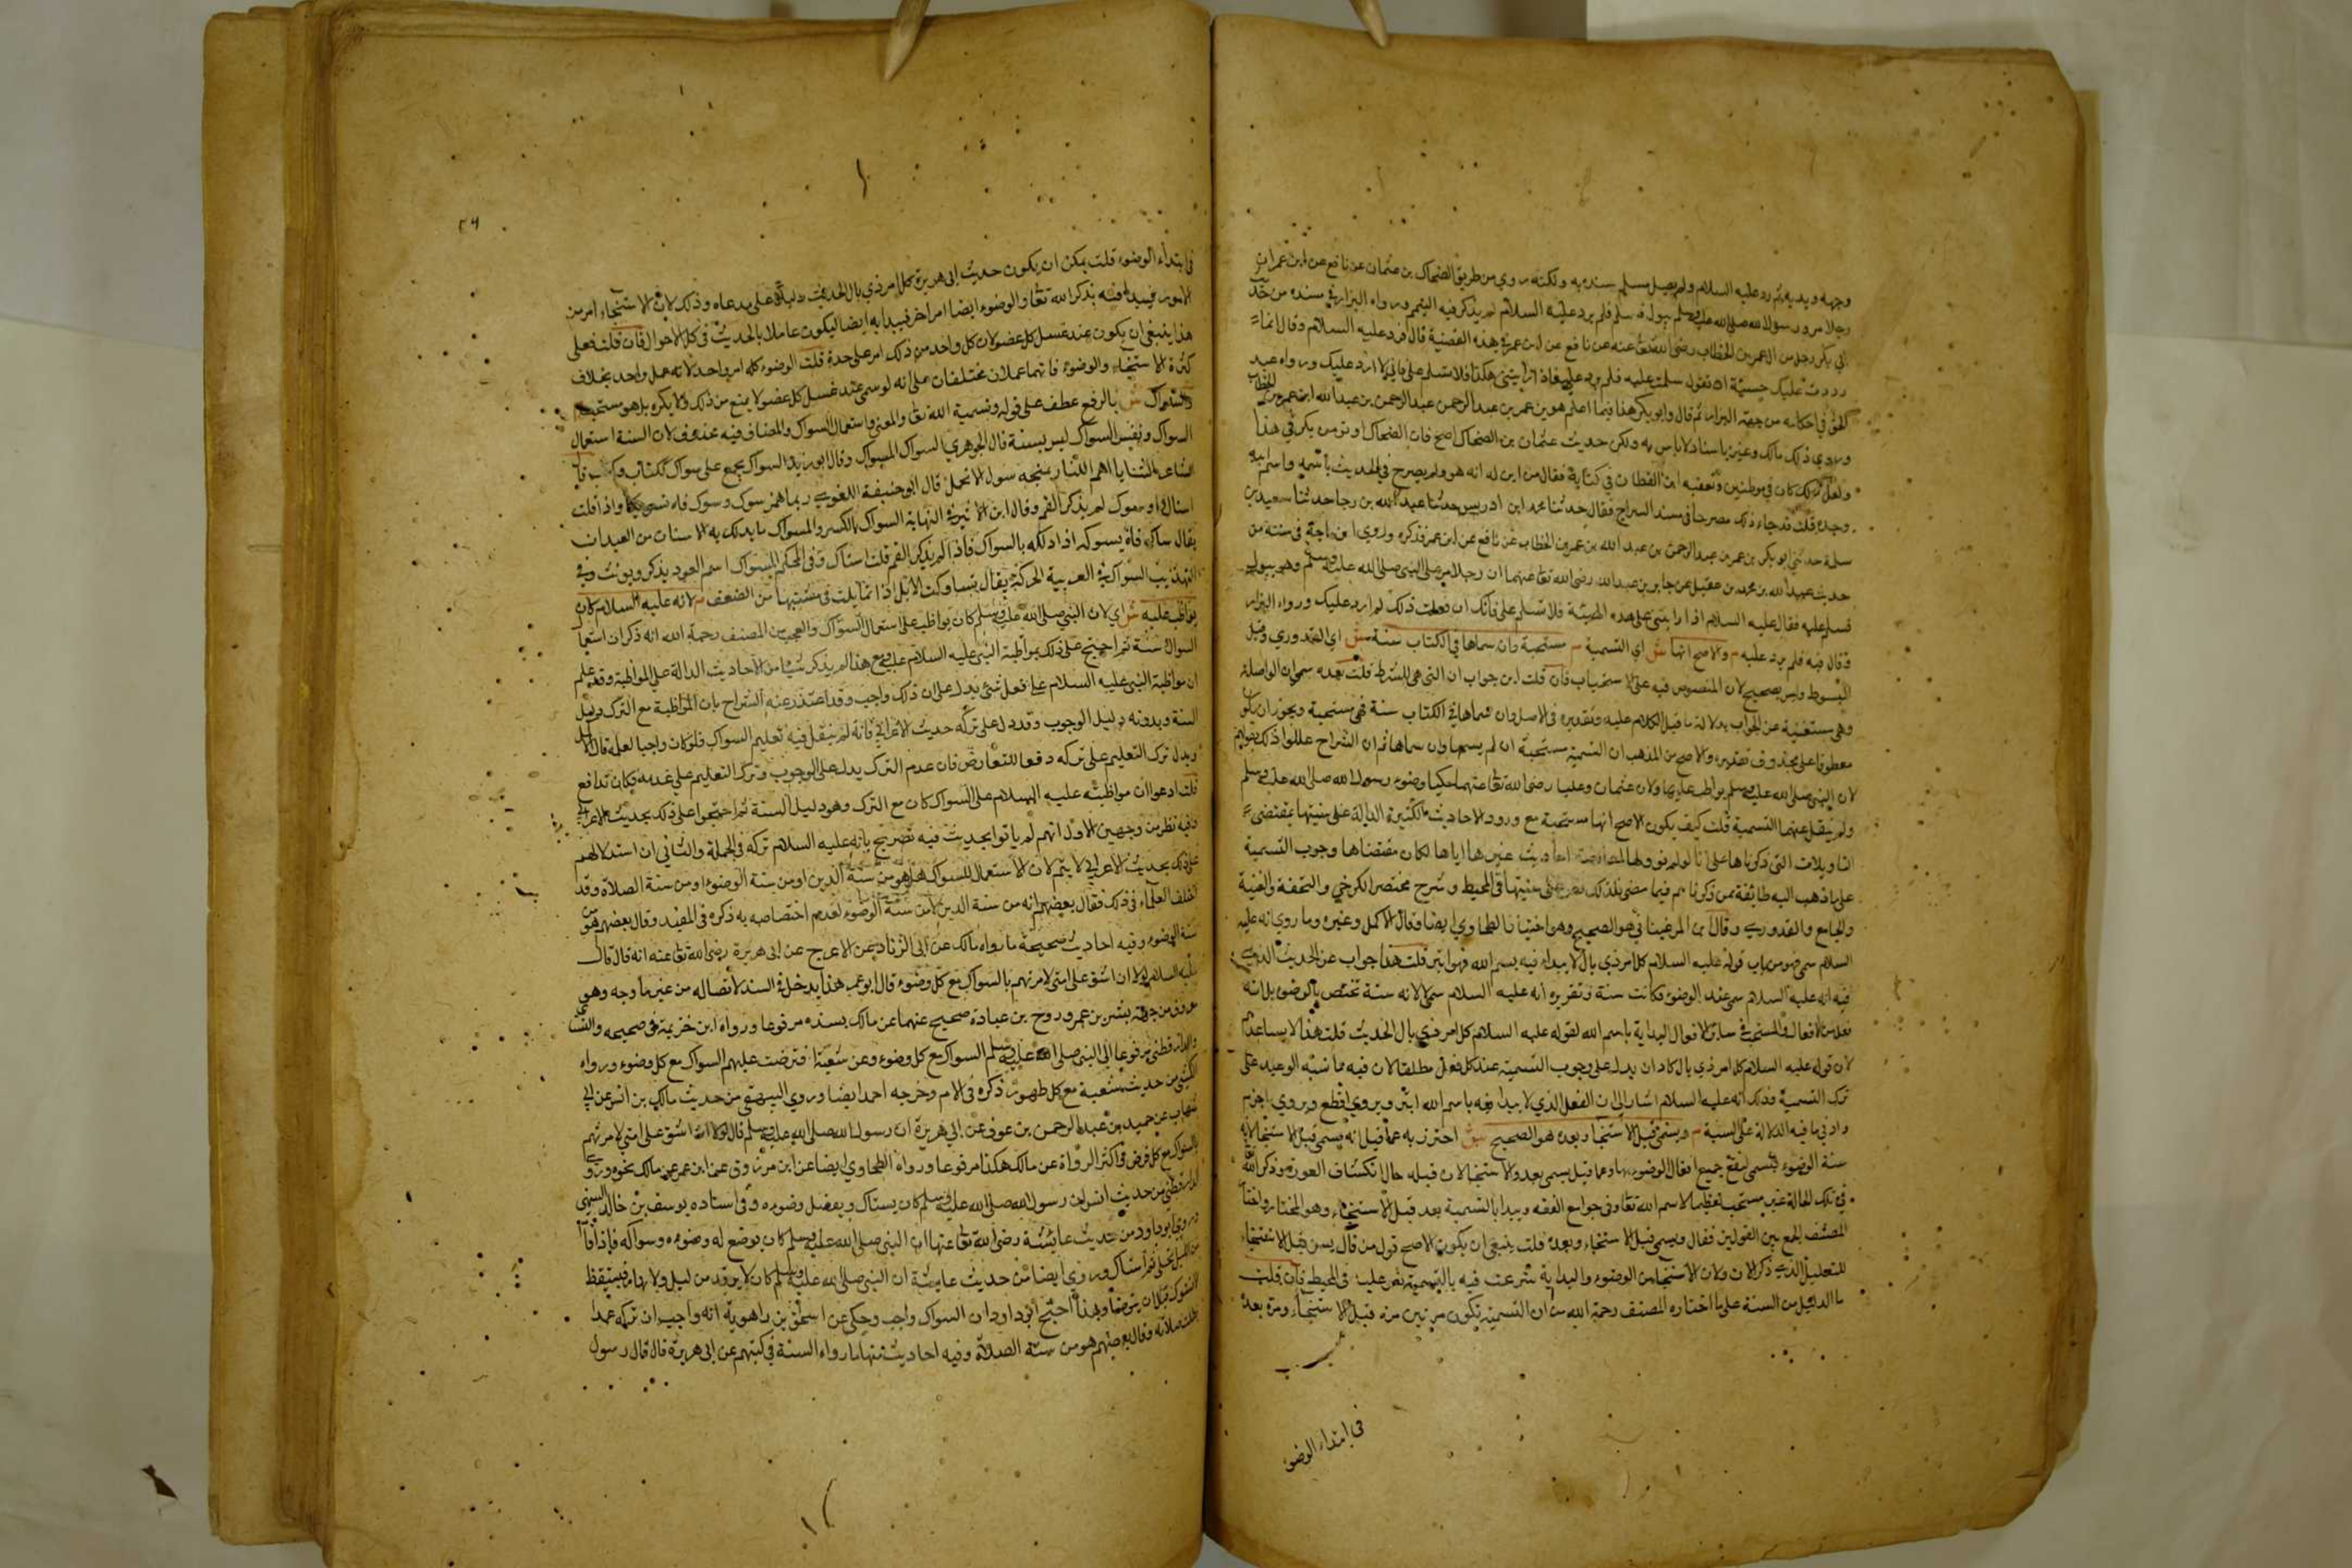 وجهه ويديه ثم رد عليه السلام ولم يصل مسلم سنده به ولكنه روي من طريق الضحاك بن عثمان عن نافع عن ابن عمر ان
رجلا مر ورسول الله صلى الله عليه وسلم يبول فسلم فلم يرد عليه السلام لم يذكر فيه التيمم ورواه البزار في سنده من
ابي بكر رجل من ال عمر بن الخطاب رضي الله تعالى عنه عن نافع عن ابن عمر في هذه القضية قال فرد عليه السلام وقال انما
رددت عليك خشية ان تقول سلمت عليه فلم يرد علي فاذا رايتني هكذا فلا تسلم علي فاني لا ارد عليك ورواه عبد
الحق في احكامه من جهة البزار ثم قال وابو بكر هذا فيما اعلم هو بن عمر بن عبد الرحمن بن عبد الله ابن عمر بن الخطاب
وروى ذلك مالك وغيره باسناد لا باس به ولكن حديث عثمان بن الضحاك اصح فان الضحاك اوثق من بكر في هذا
ولعل ذلك كان في موطنين وتعقبه ابن القطان في كتابه فقال من اين له انه هو ولم يصرح في الحديث باسمه واسم ابيه
وجده قلت قد جاء ذلك مصرحا في مسند السراج فقال حدثنا محمد ابن ادريس حدثنا عبد الله بن رجا حدثنا سعيد بن
سلمة حدثني ابو بكر بن عمر بن عبد الرحمن بن عبد الله بن عمر بن الخطاب عن نافع عن ابن عمر فذكره وروى ابن ماجة في سننه من
حديث عبد الله بن محمد بن عقيل عن جابر بن عبد الله رضي الله تعالى عنهما ان رجلا مر على النبي صلى الله عليه وسلم وهو يبول
فسلم عليه فقال عليه السلام اذا رايتني على هذه الهيئة فلا تسلم علي فانك ان فعلت ذلك لم ارد عليك ورواه البزار
وقال فيه فلم يرد عليه م والاصح انها ش اي التسمية م مستحبة وان سماها في الكتاب سنة ش اي القدوري وقيل
المبسوط وليس بصحيح لان المنصوص فيه على الاستحباب فان قلت اين جواب ان التي هي للشرط قلت بعده سمى ان الواصلة
وهي مستغنية عن الجواب بدلالة ما قبل الكلام عليه وتقديره في الاصل وان سماها في الكتاب سنة فهي مستحبة ويجوز ان يكون
معطوفا على محذوف تقديره والاصح من المذهب ان التسمية مستحبة ان لم يسمها وان سماها ثم ان الشراح عللوا ذلك بقولهم
لان النبي صلى الله عليه وسلم لم يواظب عليها ولان عثمان وعليا رضي الله تعالى عنهما حكيا وضوء رسول الله صلى الله عليه وسلم
ولم ينقل عنهما التسمية قلت كيف يكون الاصح انها مستحبة مع ورود الاحاديث الكثيرة الدالة على سنيتها بمقتضى
التاويلات التي ذكرناها على انا لو لم نوولها احاديث غيرها اياها لكان مقتضاها وجوب التسمية
على ما ذهب اليه طائفة ممن ذكرناهم فيما مضى فلذلك نص على سنيتها في المحيط وشرح مختصر الكرخي والتحفة والغنية
والجامع والقدوري وقال ابن المرغيناني هو الصحيح وهو اختيار الطحاوي ايضا وقال الاكمل وغيره وما روي انه عليه
السلام سمى فهو من باب قوله عليه السلام كل امر ذي بال لا يبدا فيه بسم الله فهو ابتر قلت هذا جواب عن الحديث الذي
فيه انه عليه السلام سمى عند الوضوء فكانت سنة وتقريره انه عليه السلام سمى لا لانه سنة تختص بالوضوء بل انه
فعل من الافعال والمستحب في سائر الافعال البداية باسم الله لقوله عليه السلام كل امر ذي بال الحديث قلت هذا لا يساعدهم
لان قوله عليه السلام كل امر ذي بال كاد ان يدل على وجوب التسمية عند كل فعل مطلقا لان فيه ما نسبه الوعيد على
ترك التسمية وذلك انه عليه السلام اشار الى ان الفعل الذي لا يبدا فيه باسم الله ابتر ويروى اقطع ويروى اجزم
وادنى ما فيه الدلالة على السنية م ويسمي قبل الاستنجاء وبعده هو الصحيح ش احترز به عما قيل انه يسمي قبل الاستنجاء لانه
سنة الوضوء فيسمي ليقع جميع افعال الوضوء بها وعما قيل يسمي بعد الاستنجاء لان قبله حال انكشاف العورة وذكر الله
في تلك الحالة غير مستحب تعظيما لاسم الله تعالى وفي جوامع الفقه ويبدا بالتسمية بعد قبل الاستنجاء وهو المختار واختار
المصنف الجمع بين القولين فقال ويسمي قبل الاستنجاء وبعده قلت ينبغي ان يكون الاصح قول من قال يسن قبل الاستنجاء
للتعليل الذي ذكر الان ولان الاستنجاء من الوضوء والبداية شرعت فيه بالتسمية نص عليه في المحيط فان قلت
ما الدليل من السنة على ما اختاره المصنف رحمة الله من ان التسمية تكون مرتين مرة قبل الاستنجاء ومرة بعده
في ابتداء الوضوء
٤٦
في ابتداء الوضوء قلت يمكن ان يكون حديث ابي هريرة كل امر ذي بال الحديث دليلا على مدعاه وذلك لان الاستنجاء امر من
الامور فيبدا فيه بذكر الله تعالى والوضوء ايضا امر اخر فيبدا به ايضا ليكون عاملا بالحديث في كل الاحوال فان قلت فعلى
هذا ينبغي ان يكون عند غسل كل عضو لان كل واحد من ذلك امر على حدة قلت الوضوء كله امر واحد لانه عمل واحد بخلاف
الاستنجاء والوضوء فانهما عملان مختلفان على انه لو سمى عند غسل كل عضو لا يمنع من ذلك ولا يكره بل هو مستحب م
والسواك ش بالرفع عطف على قوله وتسمية الله تعالى والمعنى واستعمال السواك والمضاف فيه محذوف لان السنة استعمال
السواك ونفس السواك ليس بسنة قال الجوهري السواك المسواك وقال ابو زيد السواك يجمع على سوك ككتاب وكتب قال
الشاعر اغر الثنايا احم اللثات يمنحه سوك الاسحل قال ابو حنيفة اللغوي ربما همز سوك وسوك فاه تسويكا واذا قلت
استاك او تسوك لم يذكر الفم وقال ابن الاثير في النهاية السواك بالكسر والمسواك ما يدلك به الاسنان من العيدان
يقال ساك فاه يسوكه اذا دلكه بالسواك فاذا لم يذكر الفم قلت استاك وفي المحكم السواك اسم العود يذكر ويونث وفي
التهذيب السواك في العربية الحركة يقال تساوكت الابل اذا تمايلت في مشيتها من الضعف م لانه عليه السلام كان
يواظب عليه ش اي لان النبي صلى الله عليه وسلم كان يواظب على استعمال السواك والعجب من المصنف رحمة الله انه ذكر ان استعمال
السواك سنة ثم احتج على ذلك بمواظبة النبي عليه السلام عليه ومع هذا لم يذكر شيئا من الاحاديث الدالة على المواظبة وقد علم
ان مواظبة النبي عليه السلام على فعل شئ يدل على ان ذلك واجب وقد اعتذر عنه الشراح بان المواظبة مع الترك دليل
السنة وبدونه دليل الوجوب وقد دل على تركه حديث الاعرابي فانه لم ينقل فيه تعليم السواك فلو كان واجبا لعلمه قال الاكمل
ويدل ترك التعليم على تركه دفعا للتعارض فان عدم الترك يدل على الوجوب وترك التعليم على عدمه فكان تدافع
قلت ادعوا ان مواظبته عليه السلام على السواك كان مع الترك وهو دليل السنة ثم احتجوا على ذلك بحديث الاعرابي
وفيه نظر من وجهين الاول انهم لم ياتوا بحديث فيه تصريح بانه عليه السلام تركه في الجملة والثاني ان استدلالهم
على ذلك بحديث الاعرابي لا يتم لان الاستعمال للسواك هل هو من سنة الدين او من سنة الوضوء او من سنة الصلاة وقد
اختلف العلماء في ذلك فقال بعضهم انه من سنة الدين لا من سنة الوضوء لعدم اختصاصه به ذكره في المفيد وقال بعضهم هو من
سنة الوضوء وفيه احاديث صحيحة ما رواه مالك عن ابي الزناد عن الاعرج عن ابي هريرة رضي الله تعالى عنه انه قال قال
عليه السلام لولا ان اشق على امتي لامرتهم بالسواك مع كل وضوء قال ابو عمر هذا يدخل في السند لاتصاله من غير ما وجه وهو
معروف من جهة بشر بن عمر وروح بن عبادة صحيح عنهما عن مالك بسنده مرفوعا ورواه ابن خزيمة في صحيحه والنسائي
والدارقطني مرفوعا الى النبي صلى الله عليه وسلم السواك مع كل وضوء وعن شعبة افترضت عليهم السواك مع كل وضوء ورواه
من حديث شعبة مع كل طهور ذكره في الام وخرجه احمد ايضا وروى البيهقي من حديث مالك بن انس عن ابن
شهاب عن حميد بن عبد الرحمن بن عوف عن ابي هريرة ان رسول الله صلى الله عليه وسلم قال لولا ان اشق على امتي لامرتهم
بالسواك مع كل فرض في اكثر الرواة عن مالك هكذا مرفوعا ورواه الطحاوي ايضا عن ابن مرزوق عن ابن عمر عن مالك نحوه وروى
الدارقطني من حديث انس ان رسول الله صلى الله عليه وسلم كان يستاك ويفضل وضوءه وفي اسناده يوسف بن خالد السمتي
وروى ابو داود من حديث عائشة رضي الله تعالى عنها ان النبي صلى الله عليه وسلم كان يوضع له وضوءه وسواكه فاذا قام
من الليل تخلى ثم استاك وروى ايضا من حديث عايشة ان النبي صلى الله عليه وسلم كان لا يرقد من ليل ولا نهار فيستيقظ
الا تسوك قبل ان يتوضأ وبهذا احتج ابو داود ان السواك واجب وحكي عن اسحق بن راهوية انه واجب ان تركه عمدا
بطلت صلاته وقال بعضهم هو من سنة الصلاة وفيه احاديث منها ما رواه الستة في كتبهم عن ابي هريرة قال قال رسول